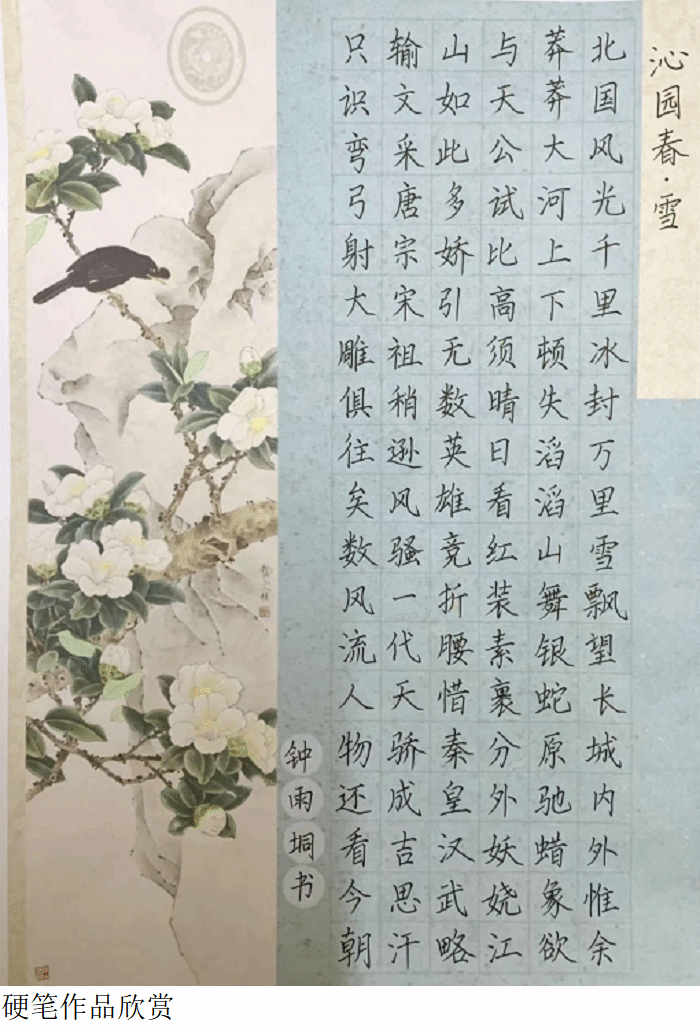 沁园春·雪
北国风光千里冰封万里雪飘望长城内外惟余
莽莽大河上下顿失滔滔山舞银蛇原驰蜡象欲
与天公试比高须晴日看红装素裹分外妖娆江
山如此多娇引无数英雄竞折腰惜秦皇汉武略
输文采唐宗宋祖稍逊风骚一代天骄成吉思汗
只识弯弓射大雕俱往矣数风流人物还看今朝
钟雨垌书
硬笔作品欣赏